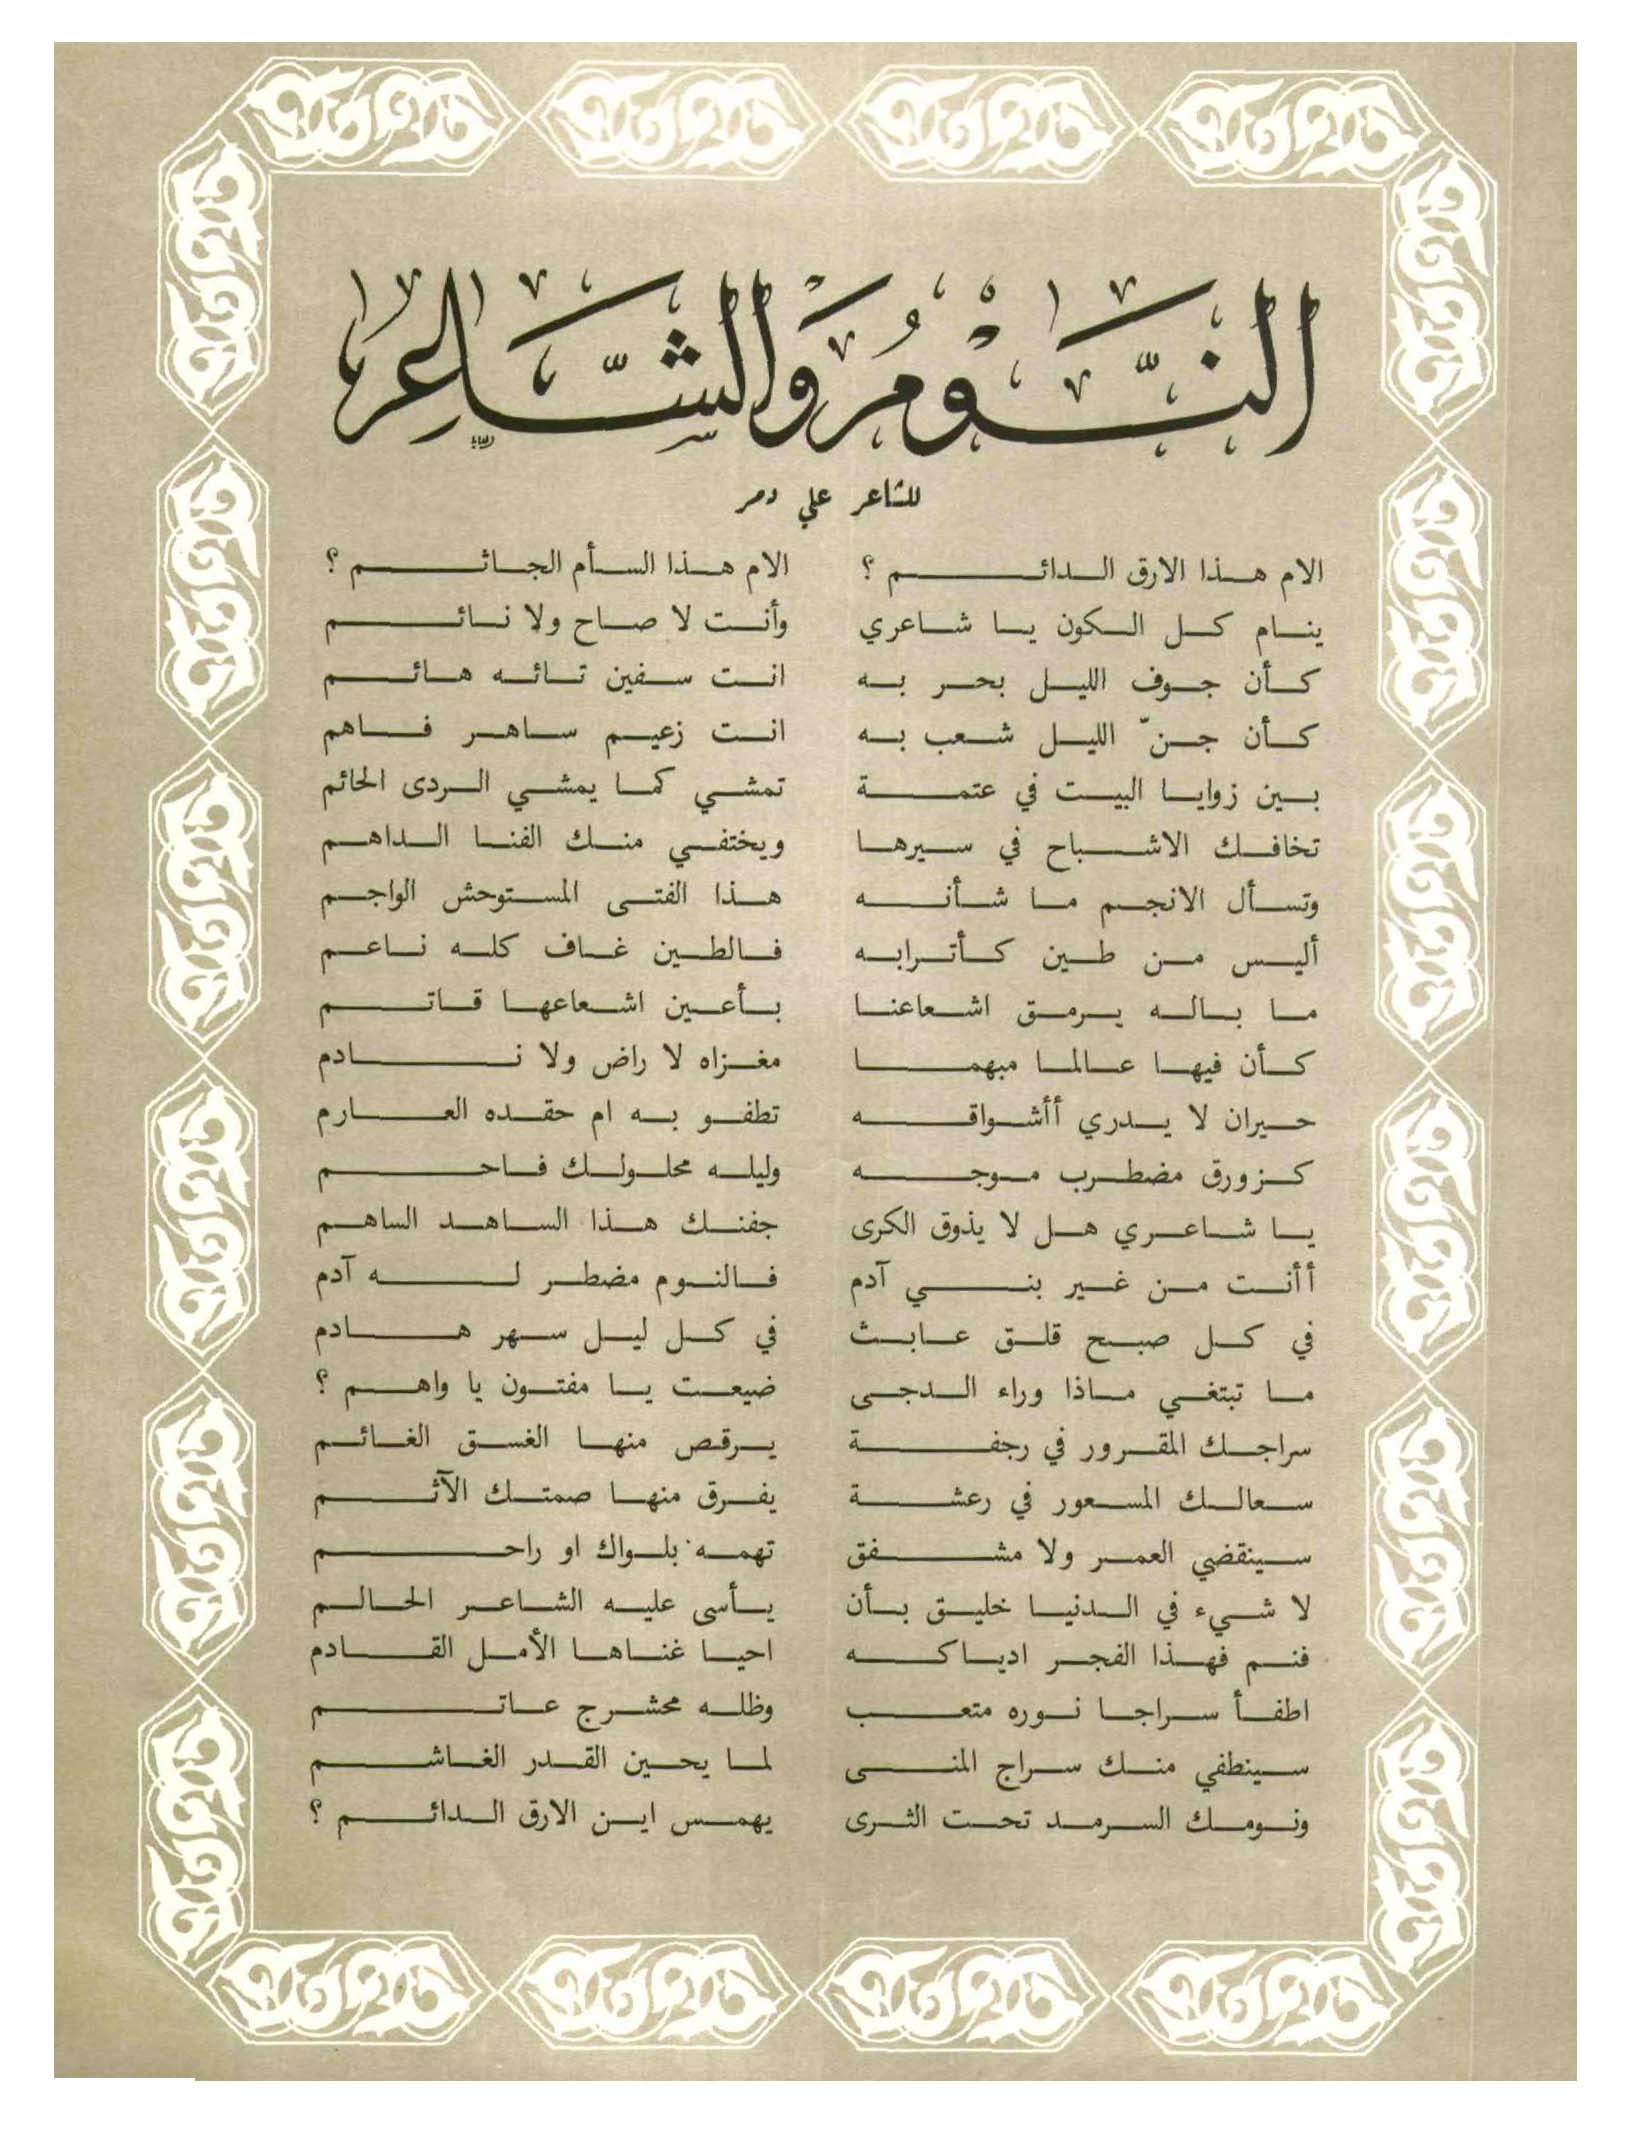 النَّوْمُ وَالشَّاعِر
للشاعر علي دمر
الام هذا الارق الدائم ؟ الام هذا السأم الجاثم ؟
ينام كل الكون يا شاعري وأنت لا صاح ولا نائم
كأن جوف الليل بحر به انت سفين تائه هائم
كأن جنّ الليل شعب به انت زعيم ساهر فاهم
بين زوايا البيت في عتمة تمشي كما يمشي الردى الحائم
تخافك الاشباح في سيرها ويختفي منك الفنا الداهم
وتسأل الانجم ما شأنه هذا الفتى المستوحش الواجم
أليس من طين كأترابه فالطين غاف كله ناعم
ما باله يرمق اشعاعنا بأعين اشعاعها قاتم
كأن فيها عالما مبهما مغزاه لا راض ولا نادم
حيران لا يدري أأشواقه تطفو به ام حقده العارم
كزورق مضطرب موجه وليله محلولك فاحم
يا شاعري هل لا يذوق الكرى جفنك هذا الساهد الساهم
أأنت من غير بني آدم فالنوم مضطر له آدم
في كل صبح قلق عابث في كل ليل سهر هادم
ما تبتغي ماذا وراء الدجى ضيعت يا مفتون يا واهم ؟
سراجك المقرور في رجفة يرقص منها الغسق الغائم
سعالك المسعور في رعشة يفرق منها صمتك الآثم
سينقضي العمر ولا مشفق تهمه بلواك او راحم
لا شيء في الدنيا خليق بأن يأسى عليه الشاعر الحالم
فنم فهذا الفجر ادياكه احيا غناها الأمل القادم
اطفأ سراجا نوره متعب وظله محشرج عاتم
سينطفي منك سراج المنى لما يحين القدر الغاشم
ونومك السرمد تحت الثرى يهمس اين الارق الدائم ؟